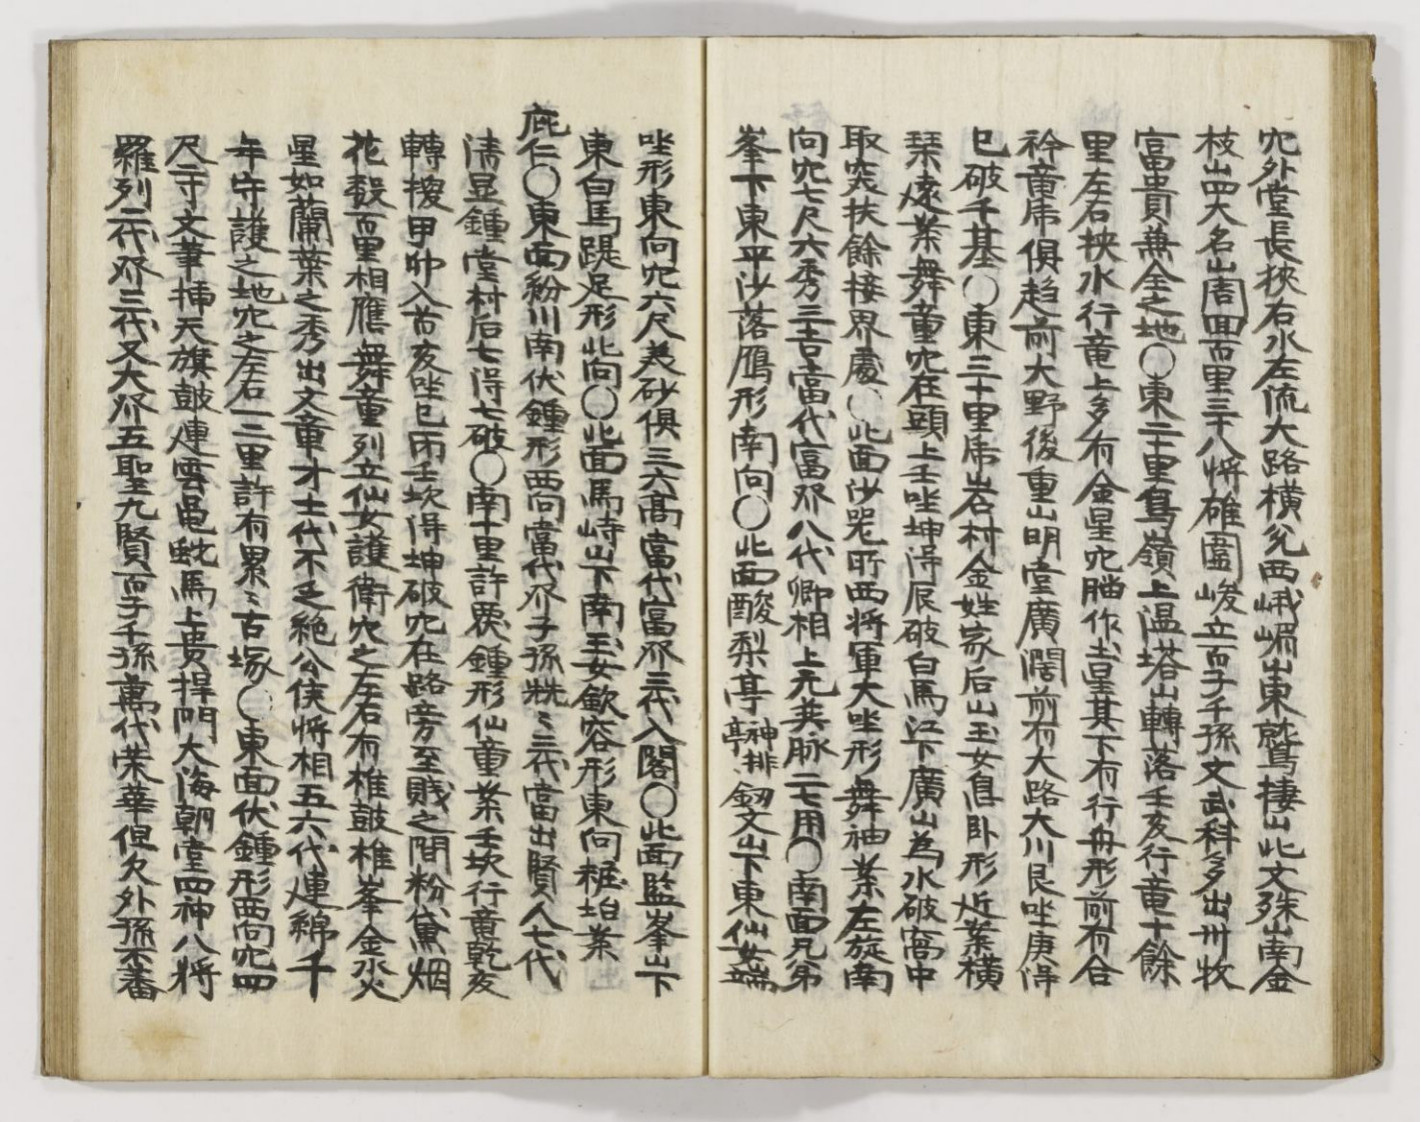 穴外堂長挾右水左流大路橫兌西峨嵋山東鷲棲山北文殊山南金
枝山四大名山周回百里三十八將碓圍峻立百子千孫文武科多出州牧
富貴兼全之地〇東二十里烏嶺上溫塔山轉落壬亥行竜十餘
里左右挾水行竜上多有金星穴腦作土星其下有行舟形前有合
衿竜席俱趍前大野後重山明堂廣濶前有大路大川艮坐庚得
巳破千基〇東三十里席岩村金姓家后山玉女息卧形近案橫
琹遠案舞童穴在頭上壬坐坤得辰破白馬江下廣山為水破窩中
取突扶餘接界處〇北面沙器所西將軍大坐形舞袖案左旋南
向穴七尺六秀三吉富代富八代卿相上元英脉二七用〇南面兄弟
峯下東平沙落鴈形南向〇北面酸梨亭神排亭釼文山下東仙女端
坐形東向穴六尺美砂俱三六高當代富三代入閣〇北面監峯山下
東白馬踶足形北向〇北面馬峙山下南玉女歛容形東向粧坮案
庇仁〇東面紛川南伏鍾形西向當代子孫兟〻三代富出賢人七代
淸显鍾堂村后七得七破〇南十里許褁鍾形仙童案壬坎行竜乾亥
轉換甲卯入首亥坐巳丙壬坎得坤破穴在路旁至賤之間粉黛烟
花殺百里相應舞童列立仙女護衛穴之左右有椎鼓椎峯金水火
星如蘭葉之秀出文章才士代不乏絶公侯將相五六代連綿千
年守護之地穴之左右一二里許有累〻古塚〇東面伏鍾形西向穴四
尺寸文筆揷天旗鼓連雲黽蛇馬上貴捍門大海朝堂四神八將
羅列二代三代又大五聖九賢百子千孫萬代荣華但欠外孫不蕃